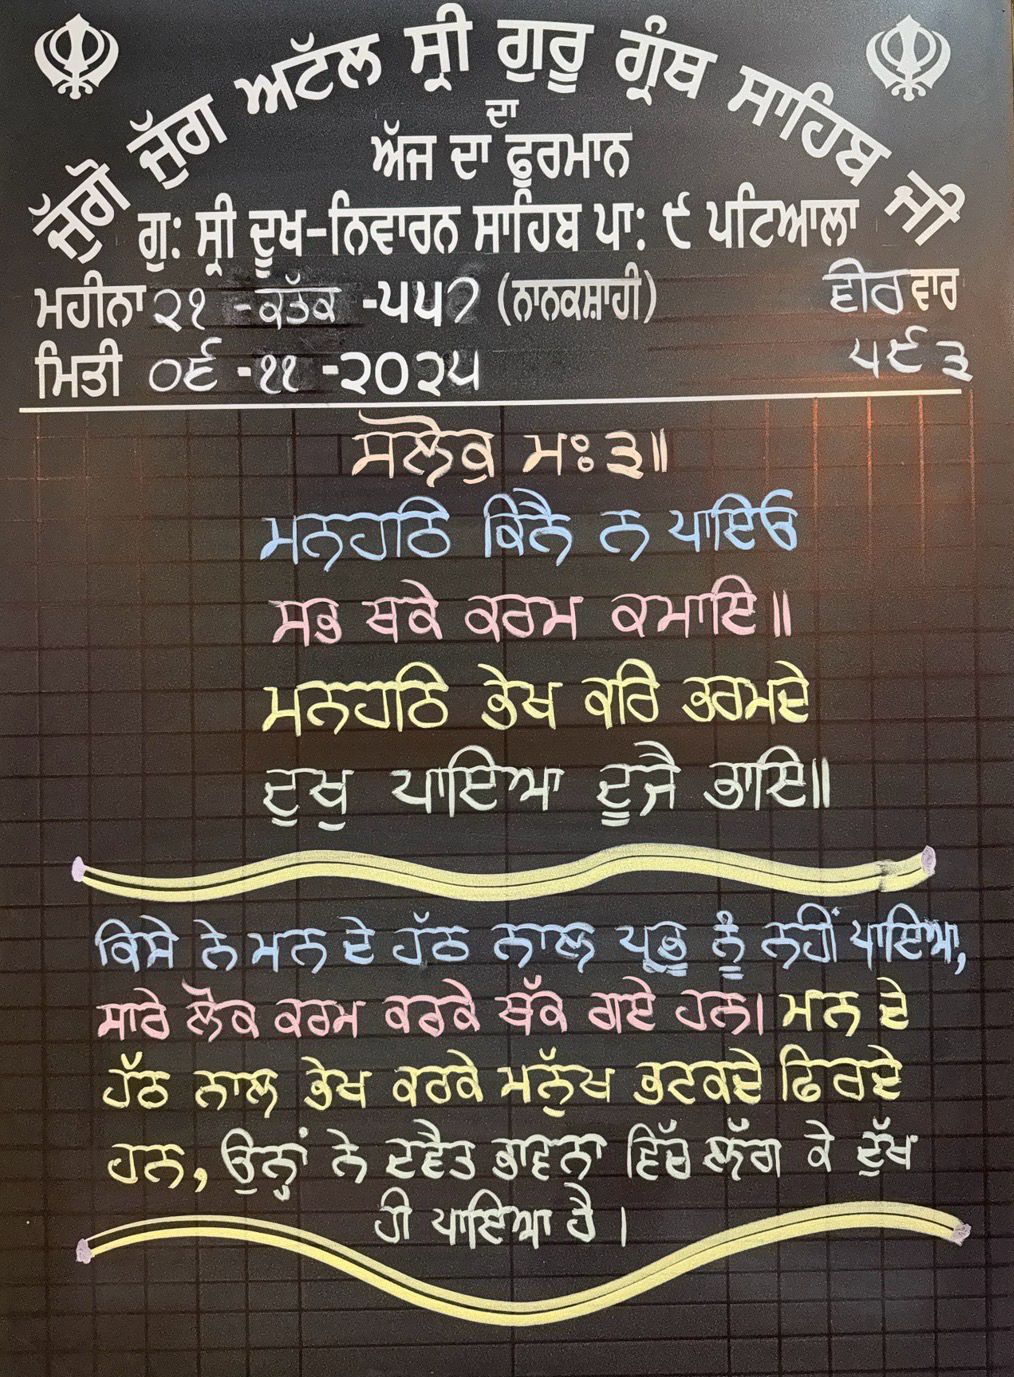 ਜੁੱਗੋ ਜੁੱਗ ਅਟੱਲ ਸ੍ਰੀ ਗੁਰੂ ਗ੍ਰੰਥ ਸਾਹਿਬ ਜੀ
ਦਾ
ਅੱਜ ਦਾ ਫੁਰਮਾਨ
ਗੁ: ਸ੍ਰੀ ਦੂਖ-ਨਿਵਾਰਨ ਸਾਹਿਬ ਪਾ: ੯ ਪਟਿਆਲਾ
ਮਹੀਨਾ ੨੧ -ਕੱਤਕ -੫੫੭ (ਨਾਨਕਸ਼ਾਹੀ) ਵੀਰਵਾਰ
ਮਿਤੀ ੦੬ -੧੧ -੨੦੨੫ ੫੯੩
ਸਲੋਕੁ ਮਃ ੩॥
ਮਨਹਠਿ ਕਿਨੈ ਨ ਪਾਇਓ
ਸਭ ਥਕੇ ਕਰਮ ਕਮਾਇ॥
ਮਨਹਠਿ ਭੇਖ ਕਰਿ ਭਰਮਦੇ
ਦੁਖੁ ਪਾਇਆ ਦੂਜੈ ਭਾਇ॥
ਕਿਸੇ ਨੇ ਮਨ ਦੇ ਹੱਠ ਨਾਲ ਪ੍ਰਭੂ ਨੂੰ ਨਹੀਂ ਪਾਇਆ,
ਸਾਰੇ ਲੋਕ ਕਰਮ ਕਰਕੇ ਥੱਕ ਗਏ ਹਨ। ਮਨ ਦੇ
ਹੱਠ ਨਾਲ ਭੇਖ ਕਰਕੇ ਮਨੁੱਖ ਭਟਕਦੇ ਫਿਰਦੇ
ਹਨ, ਉਨ੍ਹਾਂ ਨੇ ਦਵੈਤ ਭਾਵਨਾ ਵਿੱਚ ਲੱਗ ਕੇ ਦੁੱਖ
ਹੀ ਪਾਇਆ ਹੈ।